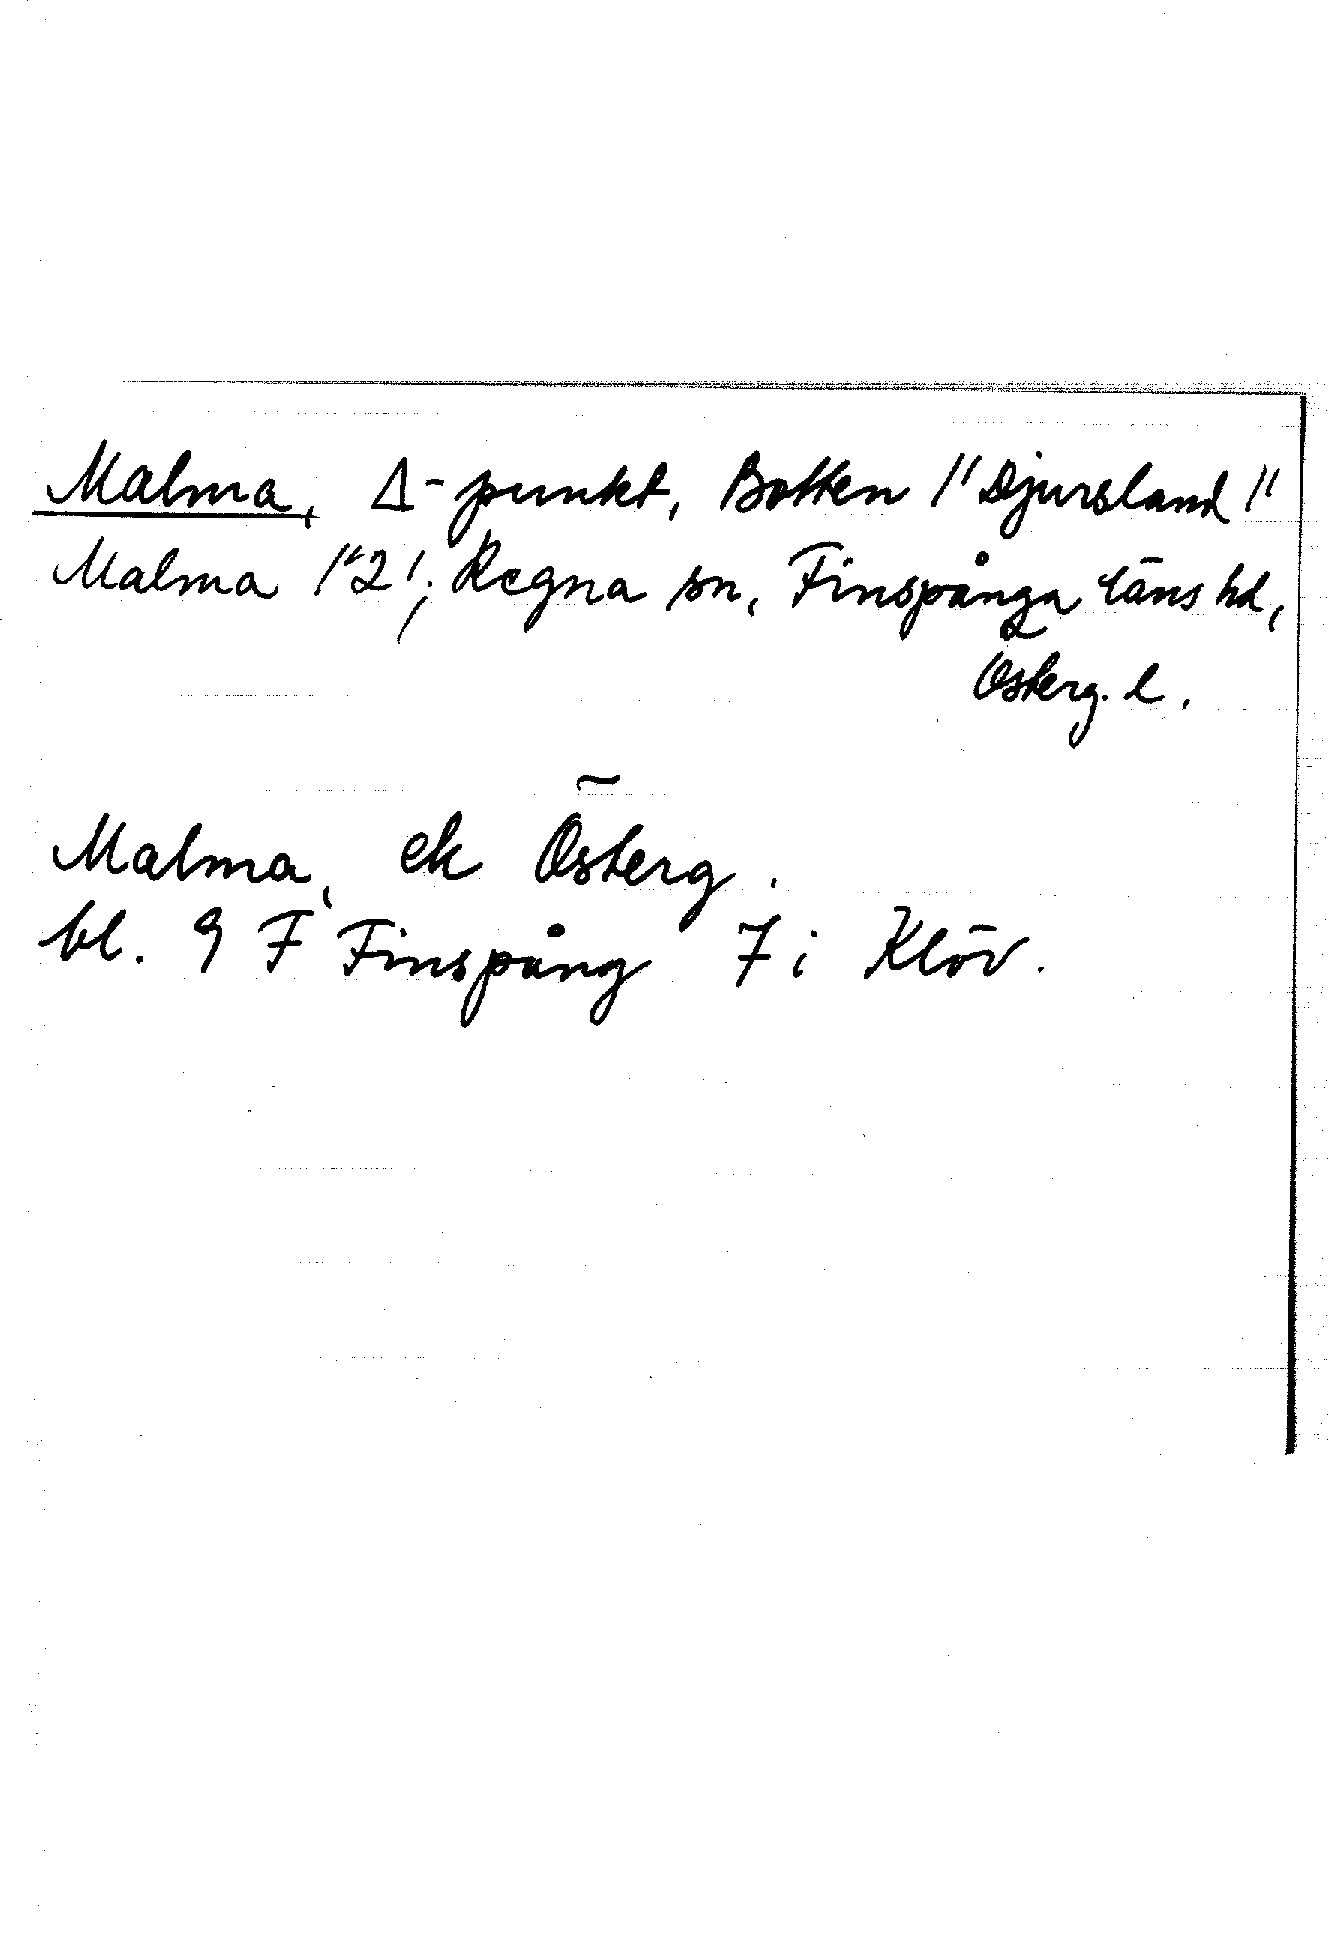 Malma, Δ-punkt, Botten /"Djursland"/
Malma /"2"/, Regna sn, Finspånga läns hd,
Österg. l.
Malma, ek Österg.
bl. 9 F Finspång 7 i Klöv.